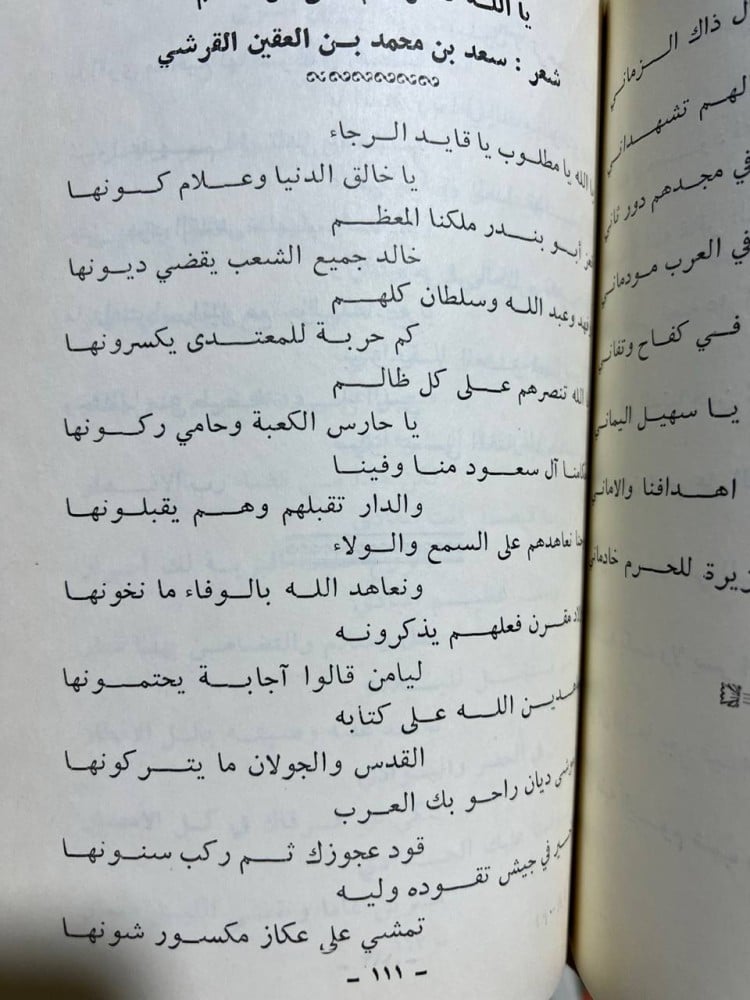 يا الله
شعر : سعد بن محمد بن العقين القرشي
الله يا مطلوب يا قايد الرجاء
يا خالق الدنيا وعلام كونها
أبو بندر ملكنا المعظم
خالد جميع الشعب يقضي ديونها
وفهد وعبد الله وسلطان كلهم
كم حربة للمعتدى يكسرونها
الله تنصرهم على كل ظالم
يا حارس الكعبة وحامي ركونها
آل سعود منا وفينا
والدار تقبلهم وهم يقبلونها
نعاهدهم على السمع والولاء
ونعاهد الله بالوفاء ما نخونها
مقرن فعلهم يذكرونه
ليامن قالوا آجابة يحتمونها
الله على كتابه
القدس والجولان ما يتركونها
ديان راحو بك العرب
قود عجوزك ثم ركب سنونها
في جيش تقوده وليه
تمشي على عكاز مكسور شونها
- ١١١ -
ل ذاك الزماني
لهم تشهداني
في مجدهم دور ثاني
في العرب مودماني
في كفاح وتفاني
يا سهيل اليماني
اهدافنا والاماني
زيرة للحرم خادماني